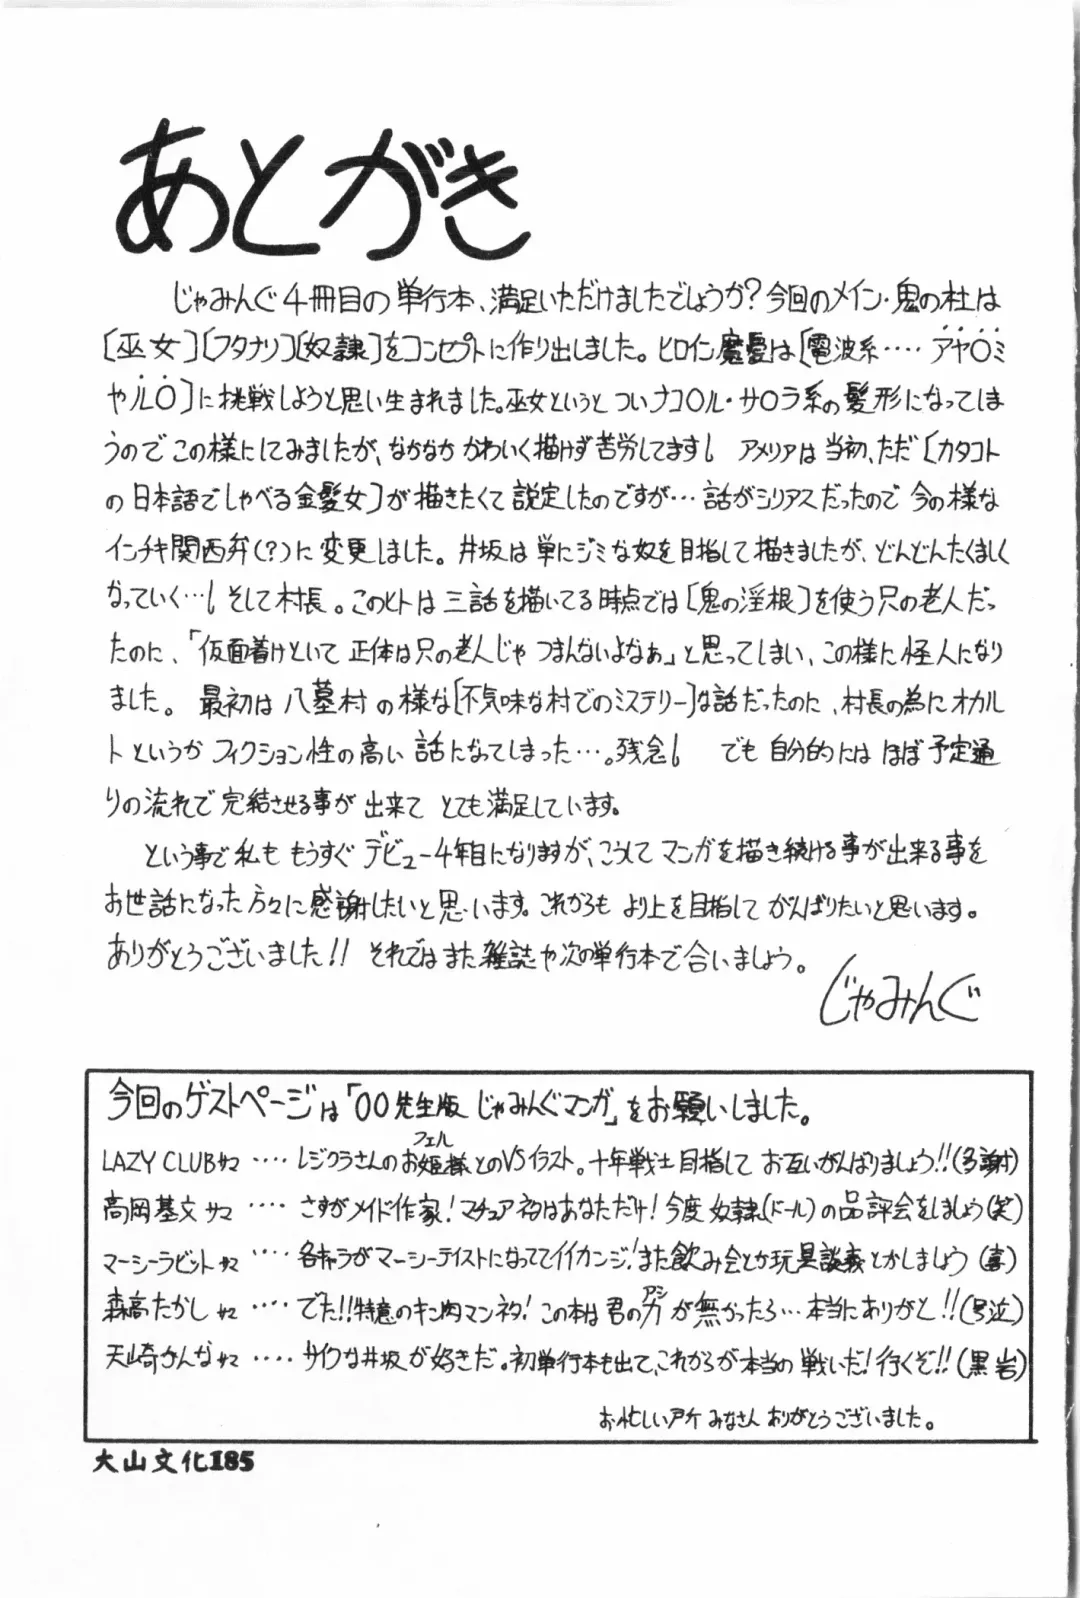 あとがき
じゃみんぐ4冊目の単行本、満足いただけましたでしょうか?今回のメイン・鬼の杜は
[巫女][フタナリ][奴隷]をコンセプトに作り出しました。ヒロイン魔憂は[電波系‥‥アヤ〇ミ
やル〇]に挑戦しようと思い生まれました。巫女というとついナコ〇ル・サ〇ラ系の髪形になってしま
うのでこの様にしてみましたが、なかなかかわいく描けず苦労してます! アメリアは当初、ただ[カタコト
の日本語でしゃべる金髪女]が描きたくて設定したのですが…話がシリアスだったので今の様な
インチキ関西弁(?)に変更しました。井坂は単にジミな奴を目指して描きましたが、どんどんたくましく
なっていく…!そして村長。このヒトは三話を描いてる時点では[鬼の淫根]を使う只の老人だっ
たのに、「仮面着けといて正体は只の老人じゃつまんないよなぁ」と思ってしまい、この様に怪人になり
ました。最初は八墓村の様な[不気味な村でのミステリー]な話だったのに、村長の為にオカル
トというかフィクション性の高い話になってしまった…。残念! でも自分的にはほぼ予定通
りの流れで完結させる事が出来てとても満足しています。
という事で私ももうすぐデビュー4年目になりますが、こうしてマンガを描き続ける事が出来る事を
お世話になった方々に感謝したいと思います。これからもより上を目指してがんばりたいと思います。
ありがとうございました!!それではまた雑誌や次の単行本で合いましょう。
じゃみんぐ
今回のゲストページは「〇〇先生版じゃみんぐマンガ」をお願いしました。
フェル
LAZY CLUBサマ‥‥レジクラさんのお姫様とのVSイラスト。十年戦士目指してお互いがんばりましょう!!(多謝)
高岡基文サマ‥‥さすがメイド作家!マチュアネタはあなただけ!今度奴隷(ドール)の品評会をしましょう(笑)
マーシーラビットサマ‥‥各キャラがマーシーテイストになっててイイカンジ!また飲み会とか玩具談義とかしましょう(喜)
アシ
森高たかしサマ‥‥でた!!特意のキン肉マンネタ!この本は君の力が無かったら…本当にありがと!!(号泣)
天崎かんなサマ‥‥サイクな井坂が好きだ。初単行本も出て、これからが本当の戦いだ!行くぞ!!(黒岩)
お忙しい所みなさんありがとうございました。
大山文化185